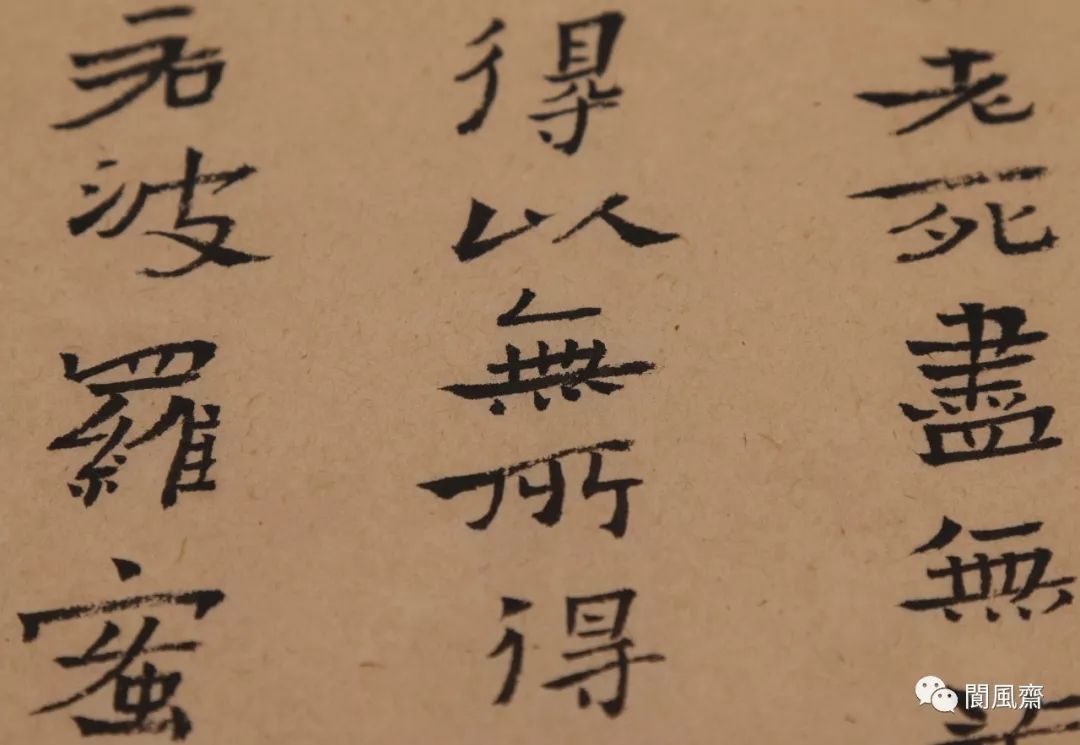 老死盡無
得以無所得
若波羅蜜
閬風齋